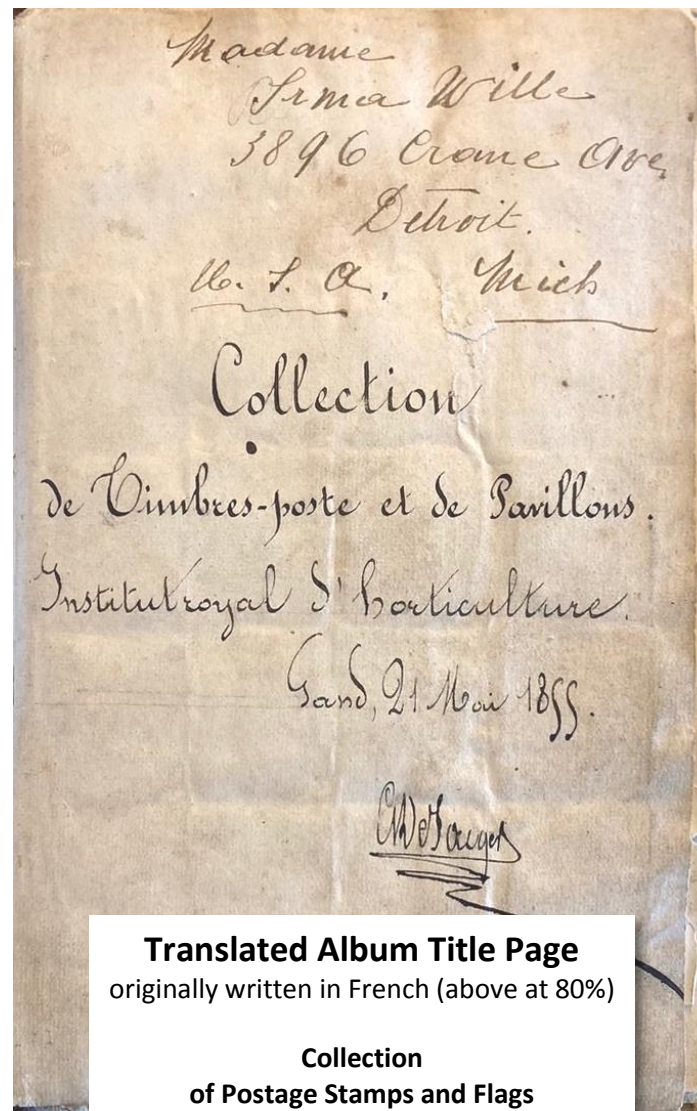 Madame
Irma Wille
3896 Crane Ave,
Detroit.
U. S. A. Mich
Collection
de Timbres-poste et de Pavillons.
Institut royal d'horticulture.
Gand, 21 Mai 1855.
Translated Album Title Page
originally written in French (above at 80%)
Collection
of Postage Stamps and Flags